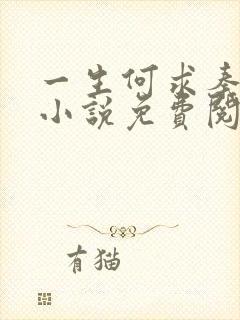 一生何求秦
小说免费阅
有猫